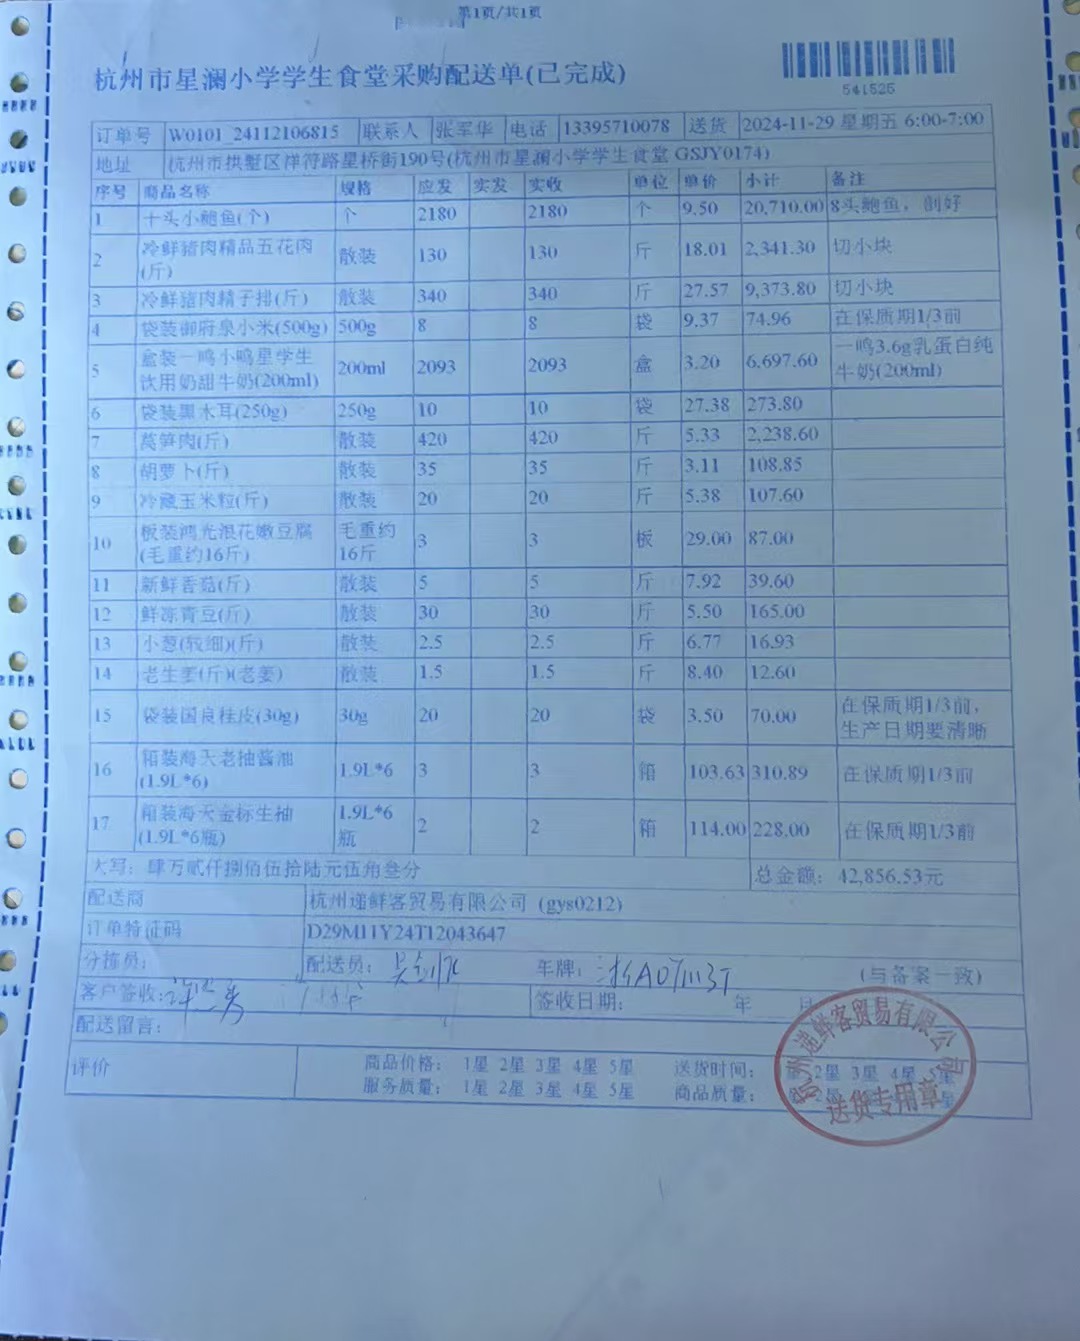 第1页/共1页
杭州市星澜小学学生食堂采购配送单(已完成)
541525
订单号 W0101_24112106815 联系人 张军华 电话 13395710078 送货 2024-11-29 星期五 6:00-7:00
地址 杭州市拱墅区祥符路星桥街190号(杭州市星澜小学学生食堂 GSJY0174)
序号 商品名称 规格 应发 实发 实收 单位 单价 小计 备注
1 十头小鲍鱼(个) 个 2180 2180 个 9.50 20,710.00 8头鲍鱼，剖好
2 冷鲜猪肉精品五花肉(斤) 散装 130 130 斤 18.01 2,341.30 切小块
3 冷鲜猪肉精子排(斤) 散装 340 340 斤 27.57 9,373.80 切小块
4 袋装御府泉小米(500g) 500g 8 8 袋 9.37 74.96 在保质期1/3前
5 盒装一鸣小鸣星学生饮用奶甜牛奶(200ml) 200ml 2093 2093 盒 3.20 6,697.60 一鸣3.6g乳蛋白纯牛奶(200ml)
6 袋装黑木耳(250g) 250g 10 10 袋 27.38 273.80
7 莴笋肉(斤) 散装 420 420 斤 5.33 2,238.60
8 胡萝卜(斤) 散装 35 35 斤 3.11 108.85
9 冷藏玉米粒(斤) 散装 20 20 斤 5.38 107.60
10 板装鸿光浪花嫩豆腐(毛重约16斤) 毛重约16斤 3 3 板 29.00 87.00
11 新鲜香菇(斤) 散装 5 5 斤 7.92 39.60
12 鲜冻青豆(斤) 散装 30 30 斤 5.50 165.00
13 小葱(较细)(斤) 散装 2.5 2.5 斤 6.77 16.93
14 老生姜(斤)(老姜) 散装 1.5 1.5 斤 8.40 12.60
15 袋装国良桂皮(30g) 30g 20 20 袋 3.50 70.00 在保质期1/3前，生产日期要清晰
16 箱装海天老抽酱油(1.9L*6) 1.9L*6 3 3 箱 103.63 310.89 在保质期1/3前
17 箱装海天金标生抽(1.9L*6瓶) 1.9L*6瓶 2 2 箱 114.00 228.00 在保质期1/3前
大写：肆万贰仟捌佰伍拾陆元伍角叁分 总金额：42,856.53元
配送商 杭州递鲜客贸易有限公司 (gys0212)
订单特征码 D29M11Y24T12043647
分拣员： 配送员： 车牌： (与备案一致)
客户签收: 签收日期： 年 月
配送留言：
评价 商品价格： 1星 2星 3星 4星 5星 送货时间： 2星 3星 4星 5星
服务质量： 1星 2星 3星 4星 5星 商品质量：
杭州递鲜客贸易有限公司
送货专用章